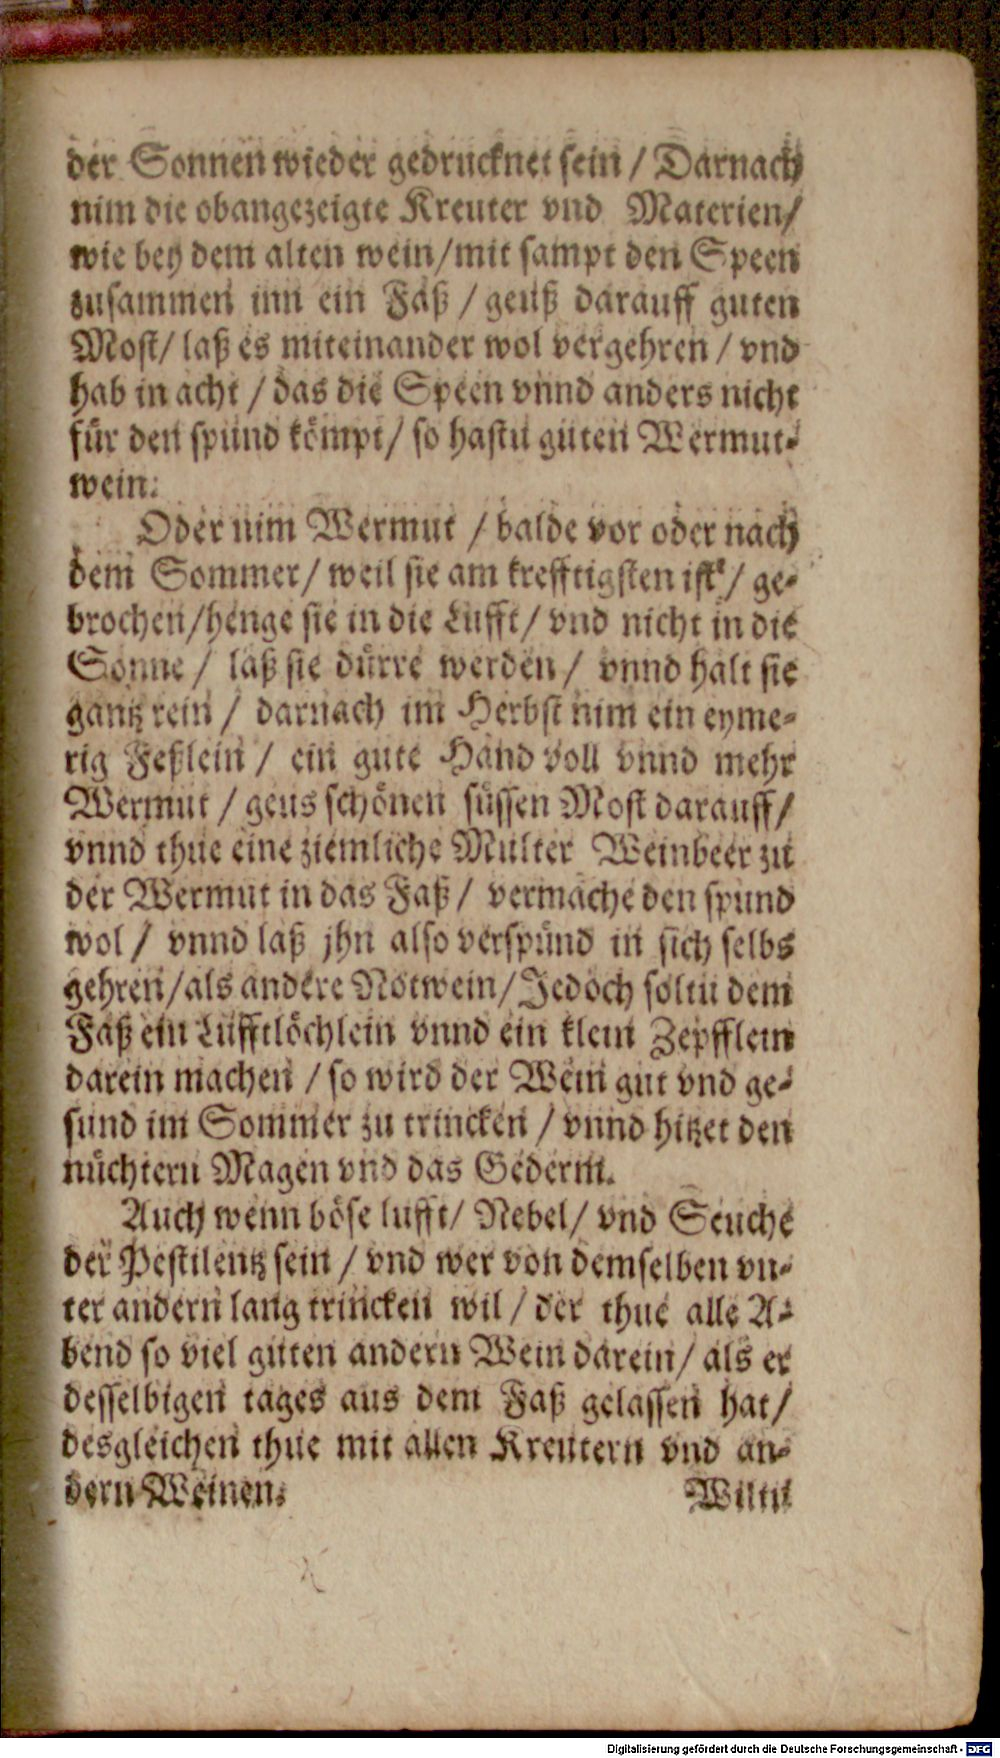 der Sonnen wieder gedrucknet sein / Darnach
nim die obangezeigte Kreuter vnd Materien/
wie bey dem alten wein/mit sampt den Speen
zusammen inn ein Faß / geuß darauff guten
Most/ laß es miteinander wol vergehren / vnd
hab in acht / das die Speen vnnd anders nicht
für den spund kömpt/ so hastu guten Wermut-
wein.
Oder nim Wermut / balde vor oder nach
dem Sommer/ weil sie am krefftigsten ist / ge-
brochen/henge sie in die Lufft/ vnd nicht in die
Sonne / laß sie dürre werden / vnnd halt sie
gantz rein / darnach im Herbst nim ein eyme-
rig Feßlein / ein gute Hand voll vnnd mehr
Wermut / geus schönen süssen Most darauff/
vnnd thue eine ziemliche Multer Weinbeer zu
der Wermut in das Faß / vermache den spund
wol / vnnd laß jhn also verspünd in sich selbs
gehren/als andere Notwein/Jedoch soltu dem
Faß ein Lufftlöchlein vnnd ein klein Zepfflein
darein machen / so wird der Wein gut vnd ge-
sund im Sommer zu trincken / vnnd hitzet den
nüchtern Magen vnd das Gederm.
Auch wenn böse lufft/ Nebel/ vnd Seuche
der Pestilentz sein / vnd wer von demselben vn-
ter andern lang trincken wil / der thue alle A-
bend so viel guten andern Wein darein/ als er
desselbigen tages aus dem Faß gelassen hat/
desgleichen thue mit allen Kreutern vnd an-
dern Weinen. Wiltu
Digitalisierung gefördert durch die Deutsche Forschungsgemeinschaft - DFG